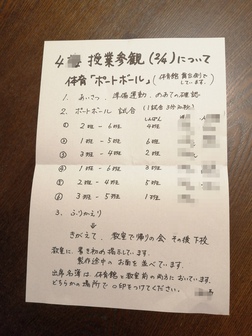 4 授業参観(2/6)について
体育「ポートボール」(体育館 舞台側で しています。)
1. あいさつ、準備運動、めあての確認
2. ポートボール 試合 (1試合 3分
しんぱん
① 2班 - 6班 4班
② 1班 - 5班 6班
③ 3班 - 4班
④ 1班 - 6班
⑤ 2班 - 4班 5班
⑥ 3班 - 5班 1班
3. ふりかえり
⇓
きがえて、教室で帰りの会 その後 下校
教室に、書き初め掲示しています。
製作途中の お面を 並べています。
出席名簿は、体育館と教室前の両方においています。
どちらかの場所で ○印をつけてください。